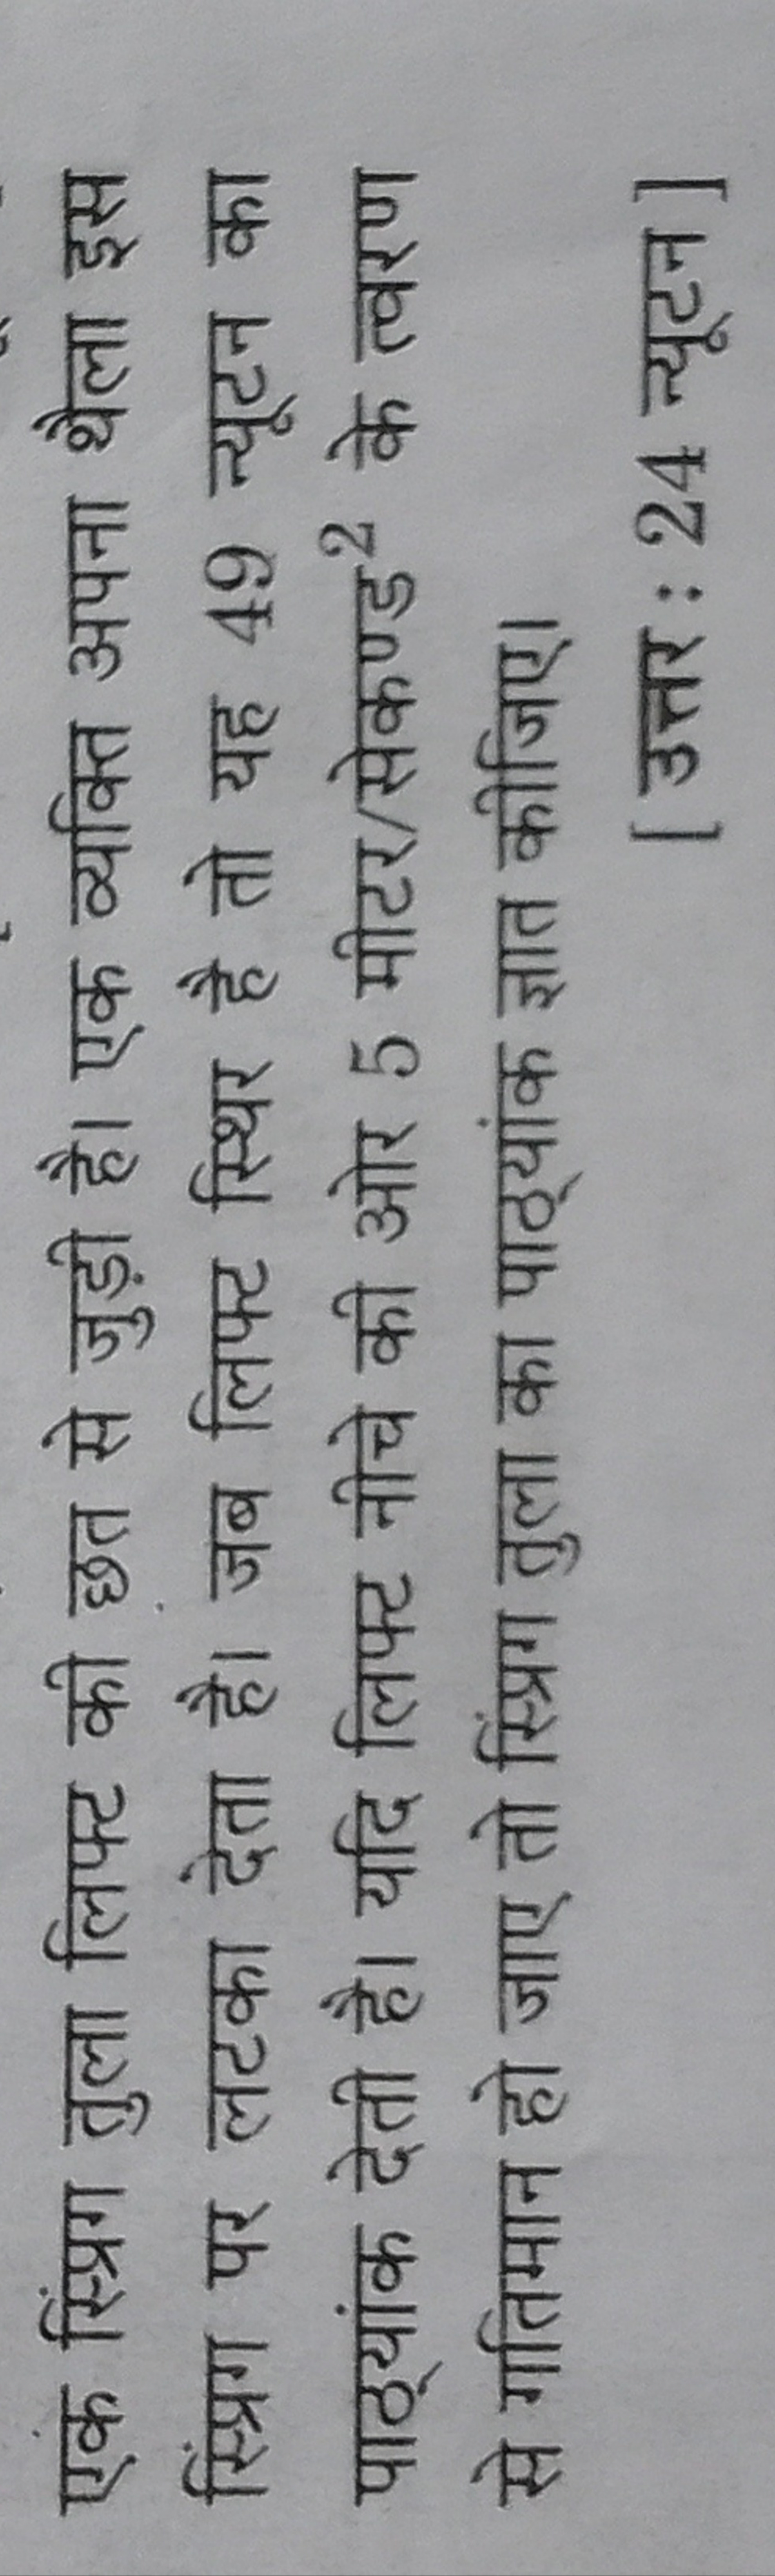 एक स्प्रिंग तुला लिफ्ट की छत से जुड़ी है। एक व्यक्ति अपना थैला इस
स्प्रिंग पर लटका देता है। जब लिफ्ट स्थिर है तो यह 49 न्यूटन का
पाठ्यांक देती है। यदि लिफ्ट नीचे की ओर 5 मीटर/सेकण्ड² के त्वरण
से गतिमान हो जाए तो स्प्रिंग तुला का पाठ्यांक ज्ञात कीजिए।
[ उत्तर : 24 न्यूटन ]